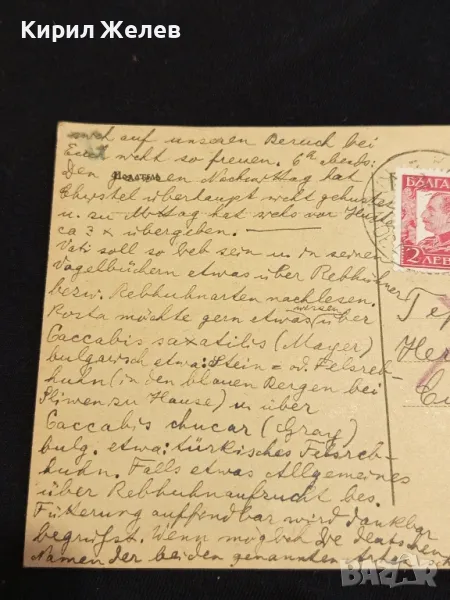 Кирил Желев
mich auf unseren Besuch bei
Euch nicht so freuen. 6ʰ abends:
Den ganzen Nachmittag hat
Податель
Christel überhaupt nicht gehustet
u. zu Mittag hat vor Husten
ca 3 x übergeben. —
Vati soll so lieb sein u. in seinen
Vogelbüchern etwas über Rebhühner
bezw. Rebhuhnarten nachlesen.
Kosta möchte gern etwas wissen über
Caccabis saxatilis (Mayer)
bulgarisch etwa: Stein= od. Felsreb-
huhn (in den blauen Bergen bei
Sliwen zu Hause) u. über
Caccabis chucar (Gray)
bulg. etwa: türkisches Felsreb-
huhn. Falls etwas Allgemeines
über Rebhuhnaufzucht bes.
Fütterung auffindbar wird dankbar
begrüßt. Wenn möglich die deutschen
Namen der beiden genannten Arten
БЪЛГА
2 ЛЕВ
Гер
Her
bazar.bg